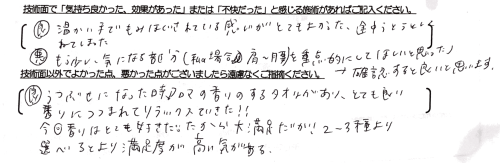 技術面で「気持ち良かった、効果があった」または「不快だった」と感じる施術があればご記入ください。
良 温かい手でもみほぐされている感じがとてもよかった。途中うとうとし
ねてしまった
悪 もう少し、気になる部分(私の場合 肩〜首)を重点的にしてほしいと思った
→確認すると良いと思います。
技術面以外でよかった点、悪かった点がございましたら遠慮なくご指摘ください。
良 うつぶせになった時アロマの香りのするタオルがあり、とても良い
香りにつつまれてリラックスできた!!
今回香りはとても好きだったから大満足だが、2〜3種より
選べるとより満足度が高い気がある。